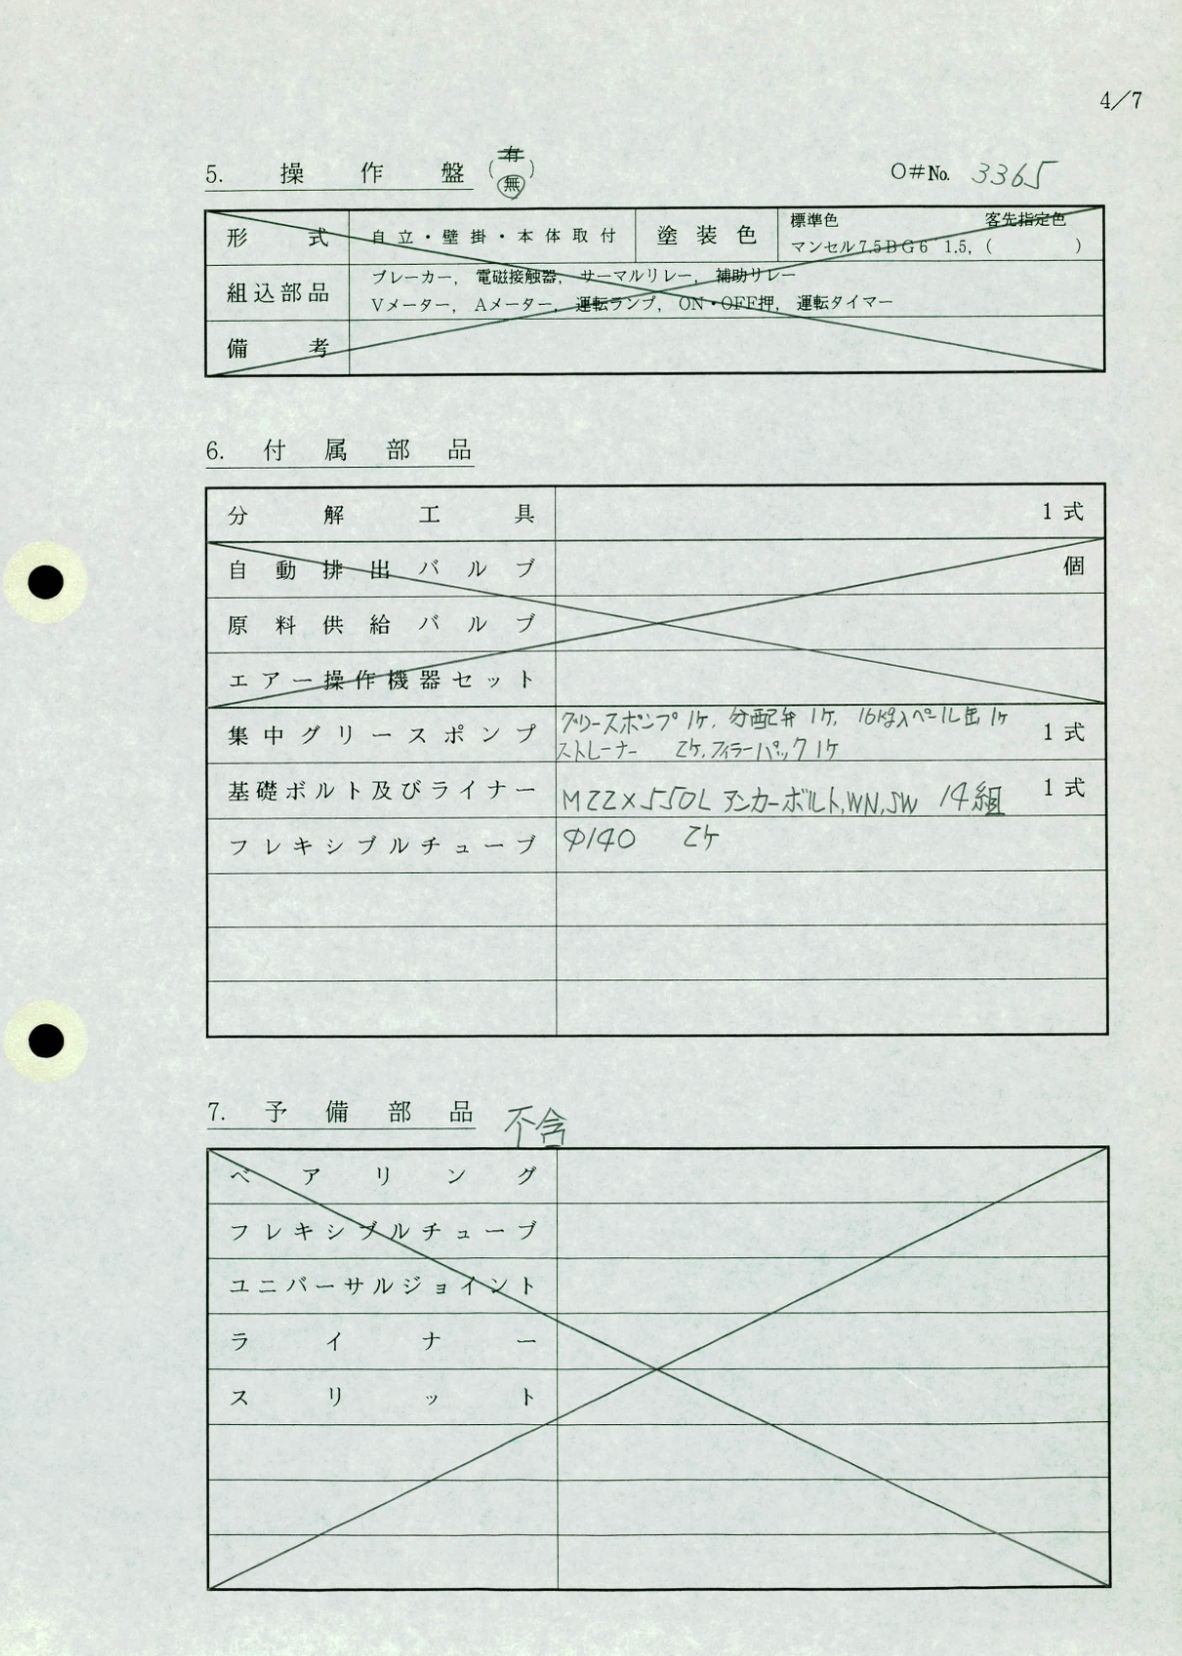 4/7
5. 操作盤 (有 無) O#No. 3365
形式 自立・壁掛・本体取付 塗装色 標準色 客先指定色
マンセル7.5BG6 1.5, ( )
組込部品 ブレーカー, 電磁接触器, サーマルリレー, 補助リレー
Vメーター, Aメーター, 運転ランプ, ON・OFF押, 運転タイマー
備考
6. 付属部品
分解工具 1式
自動排出バルブ 個
原料供給バルブ
エアー操作機器セット
集中グリースポンプ グリースポンプ 1ケ, 分配弁 1ケ, 16kg入ペール缶 1ケ 1式
ストレーナー 2ケ, フィラーパック 1ケ
基礎ボルト及びライナー M22×550L アンカーボルト,WN,SW 14組 1式
フレキシブルチューブ Φ140 2ケ
7. 予備部品 不含
ベアリング
フレキシブルチューブ
ユニバーサルジョイント
ライナー
スリット